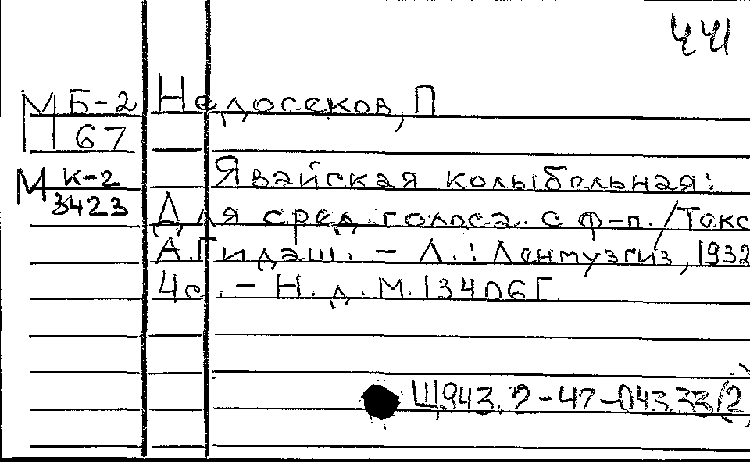 441
М Б-2 Недосеков, П
67
М К-2 Явайская колыбельная:
3423 Для сред. голоса с ф-п. / Текс
А. Гидаш. - Л.: Ленмузгиз, 1932
4с. - Н.д.М.13406Г
Щ943.2-47-043.33(2)